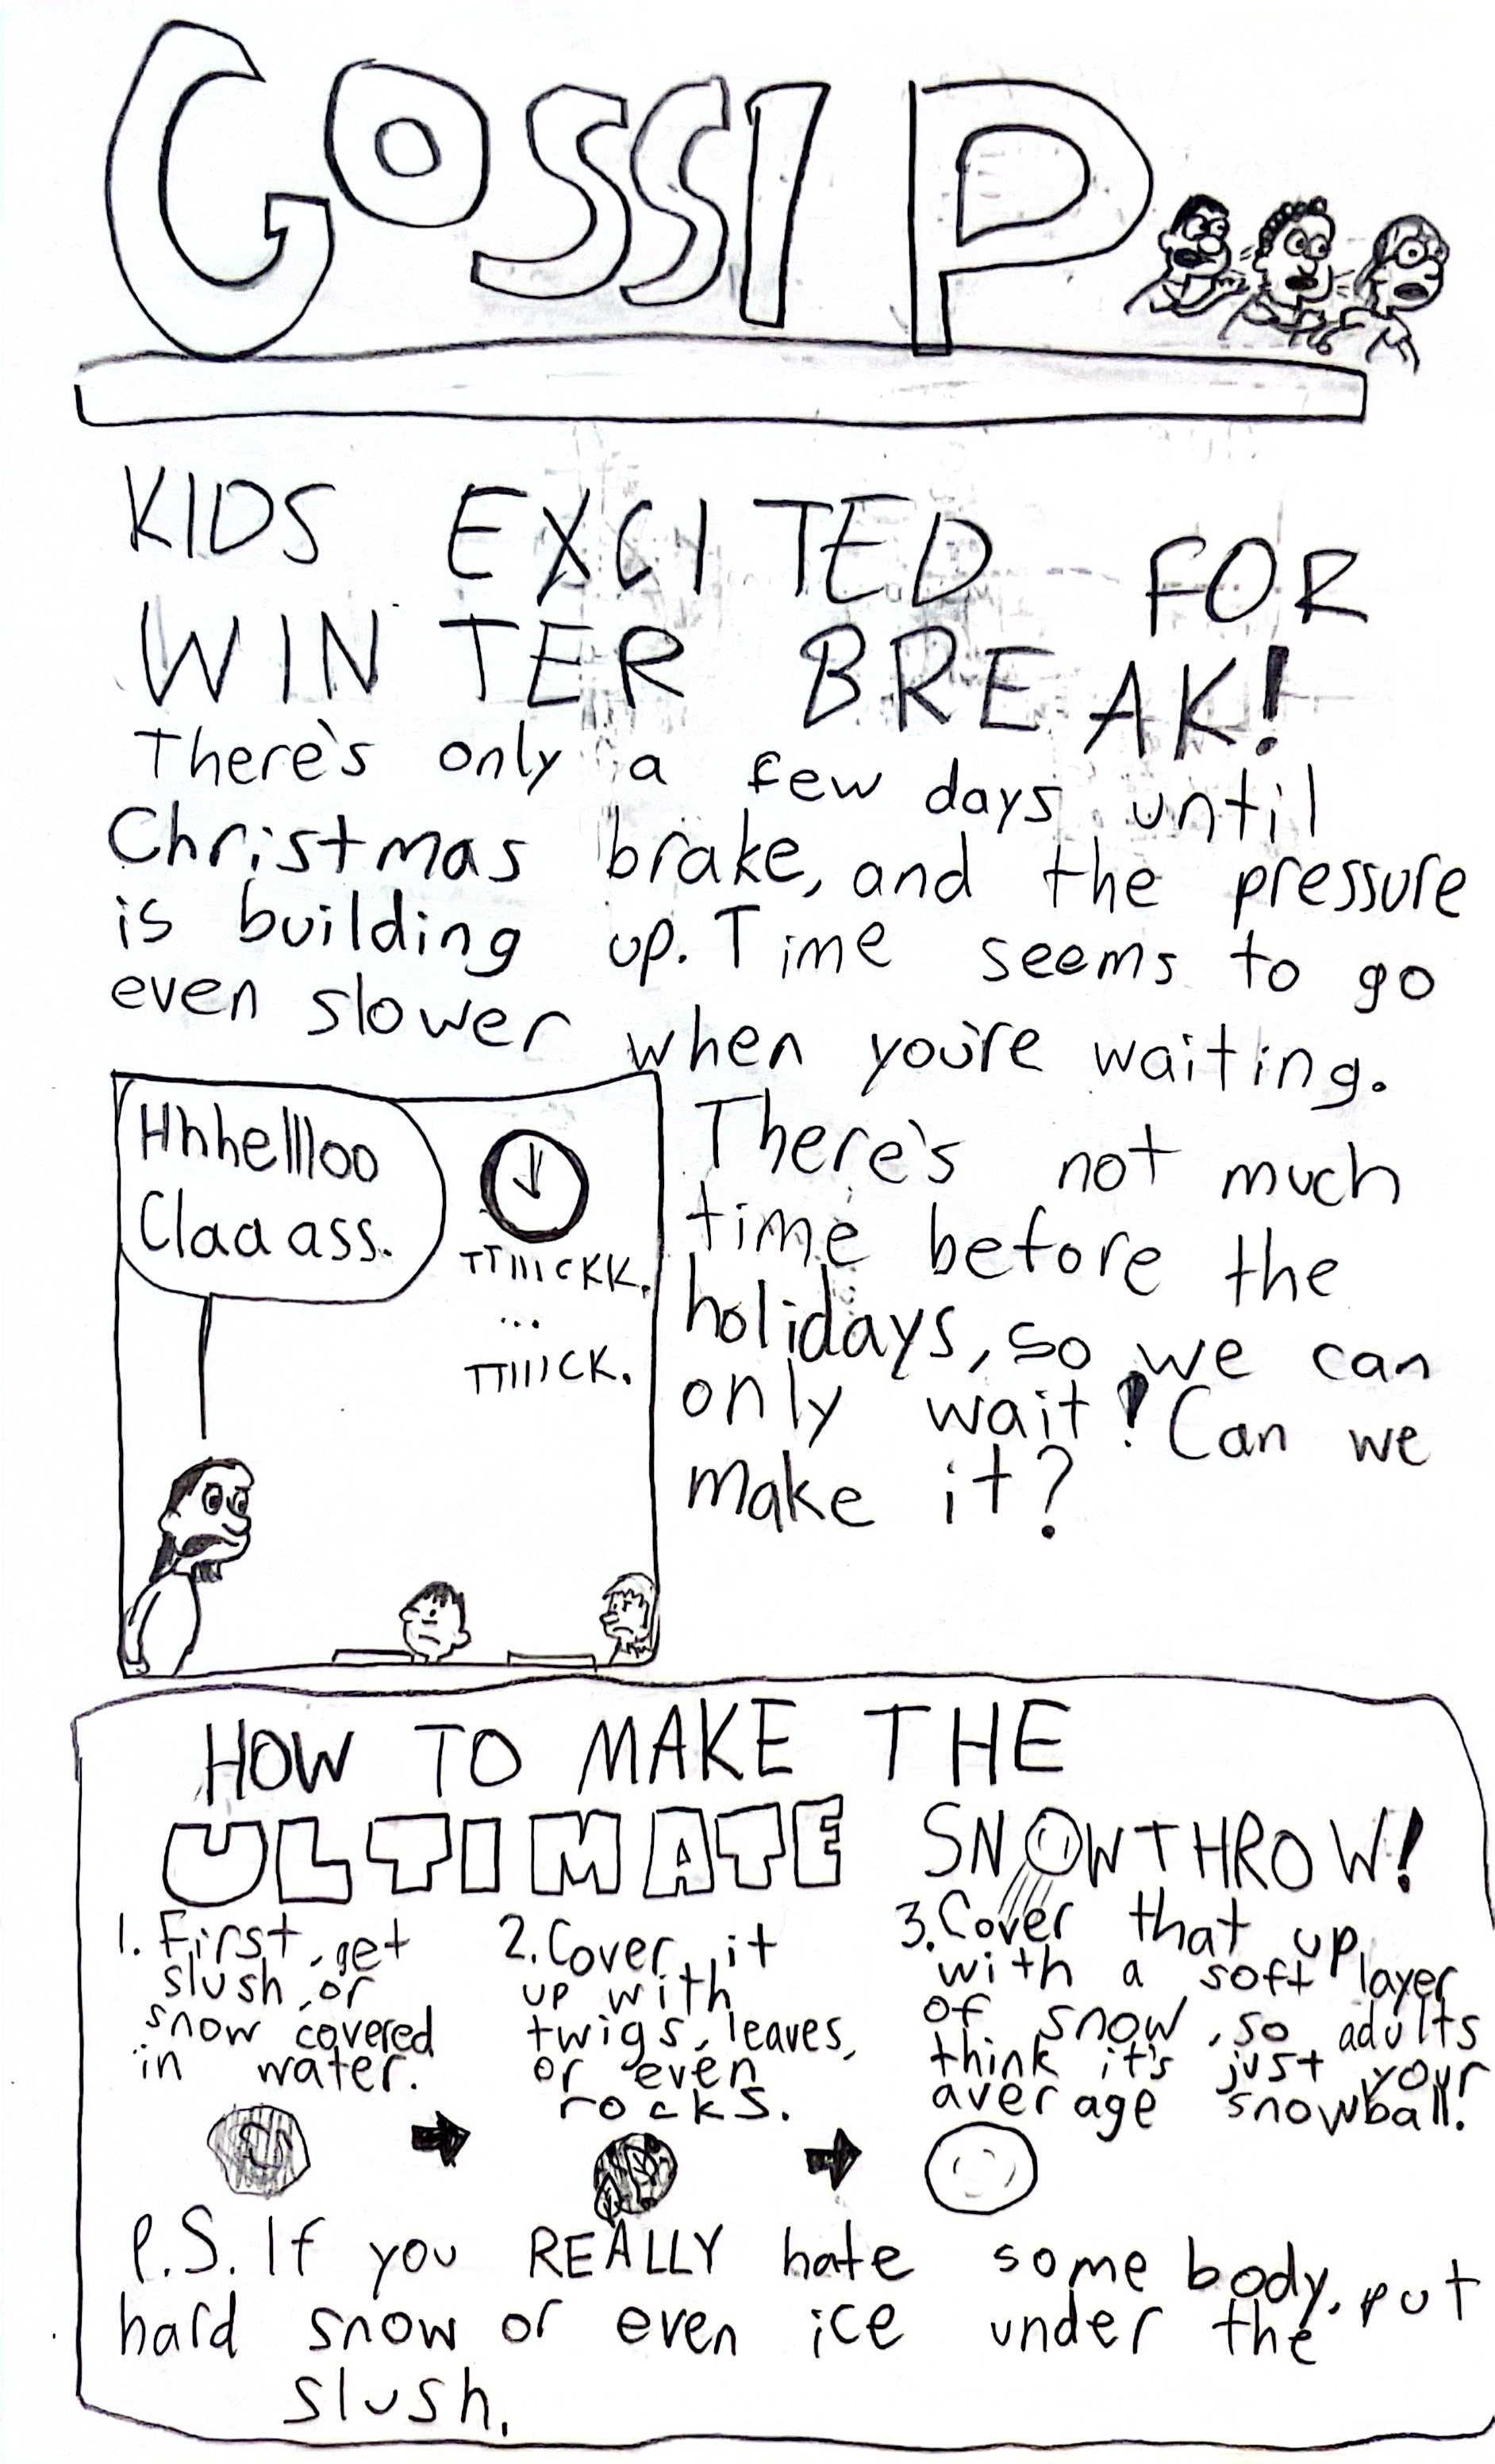 GOSSIP
KIDS EXCITED FOR
WINTER BREAK!
There's only a few days until
Christmas brake, and the pressure
is building up. Time seems to go
even slower when you're waiting.
Hhhellloo
Claaass.
TTIIICKK.
...
TTIIIICK.
There's not much
time before the
holidays, so we can
only wait! Can we
make it?
HOW TO MAKE THE
ULTIMATE SNOWTHROW!
1. First, get
slush, or
snow covered
in water.
2. Cover it
up with
twigs, leaves,
or even
rocks.
3. Cover that up
with a soft layer
of snow, so adults
think it's just your
average snowball.
P.S. If you REALLY hate some body, put
hard snow or even ice under the
slush.